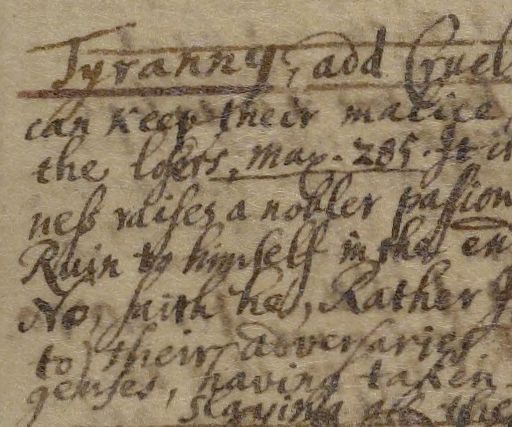 Tyranny, add Cruel
can keep their malice
the losers, max. 285. It is
ness raises a nobler passion
Ruin to himself in the en
No, saith he, Rather
to their adversaries
having taken
slaying